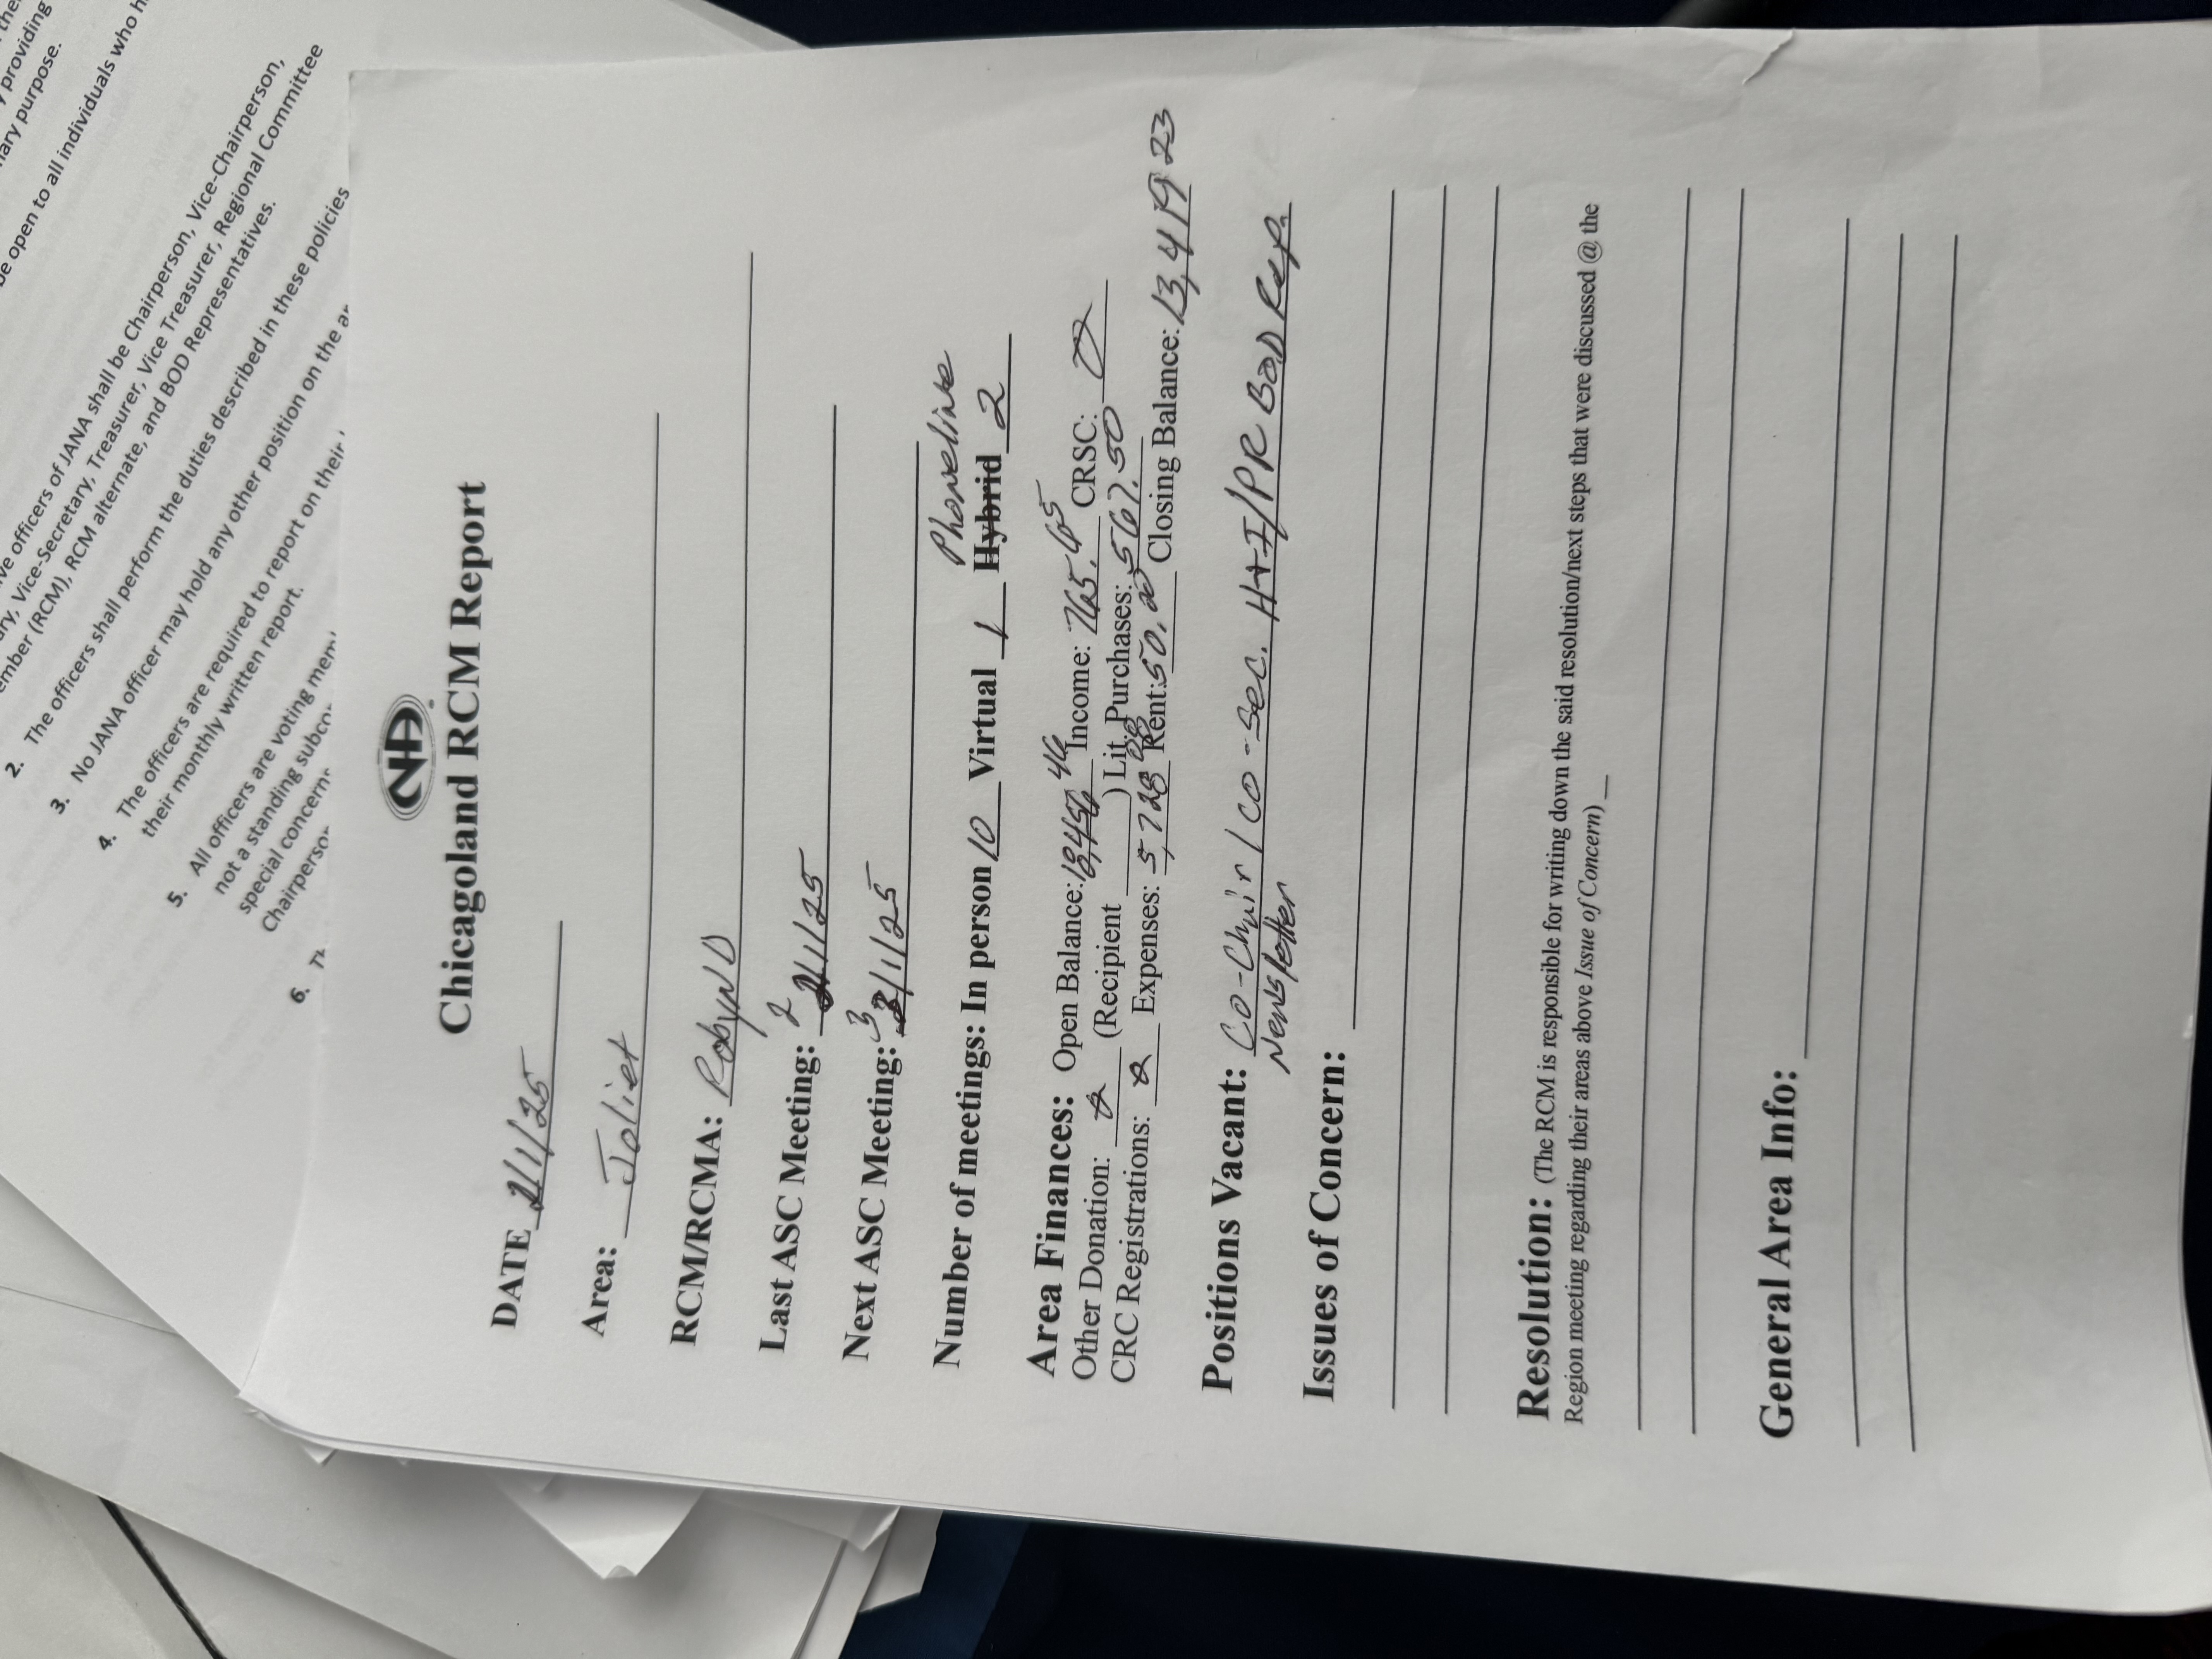 the
y providing
mary purpose.
be open to all individuals who h
ve officers of JANA shall be Chairperson, Vice-Chairperson,
ary, Vice-Secretary, Treasurer, Vice Treasurer, Regional Committee
ember (RCM), RCM alternate, and BOD Representatives.
2. The officers shall perform the duties described in these policies
3. No JANA officer may hold any other position on the ar
4. The officers are required to report on their
their monthly written report.
5. All officers are voting mem
not a standing subco
special concern
Chairperson
6. Th
NA
Chicagoland RCM Report
DATE 2/1/25
Area: Joliet
RCM/RCMA: Robyn D
Last ASC Meeting: 2/1/25
Next ASC Meeting: 3/1/25
Phoneline
Number of meetings: In person 10 Virtual 1 Hybrid 2
Area Finances: Open Balance: 46 Income: 765.65 CRSC: 0
Other Donation: 0 (Recipient ) Lit. Purchases: 567.50
CRC Registrations: 0 Expenses: Rent: 50.00 Closing Balance: 13,419 23
Positions Vacant: Co-Chair / Co-Sec. H+I/PR BOD Rep.
Newsletter
Issues of Concern:
Resolution: (The RCM is responsible for writing down the said resolution/next steps that were discussed @ the
Region meeting regarding their areas above Issue of Concern)
General Area Info: